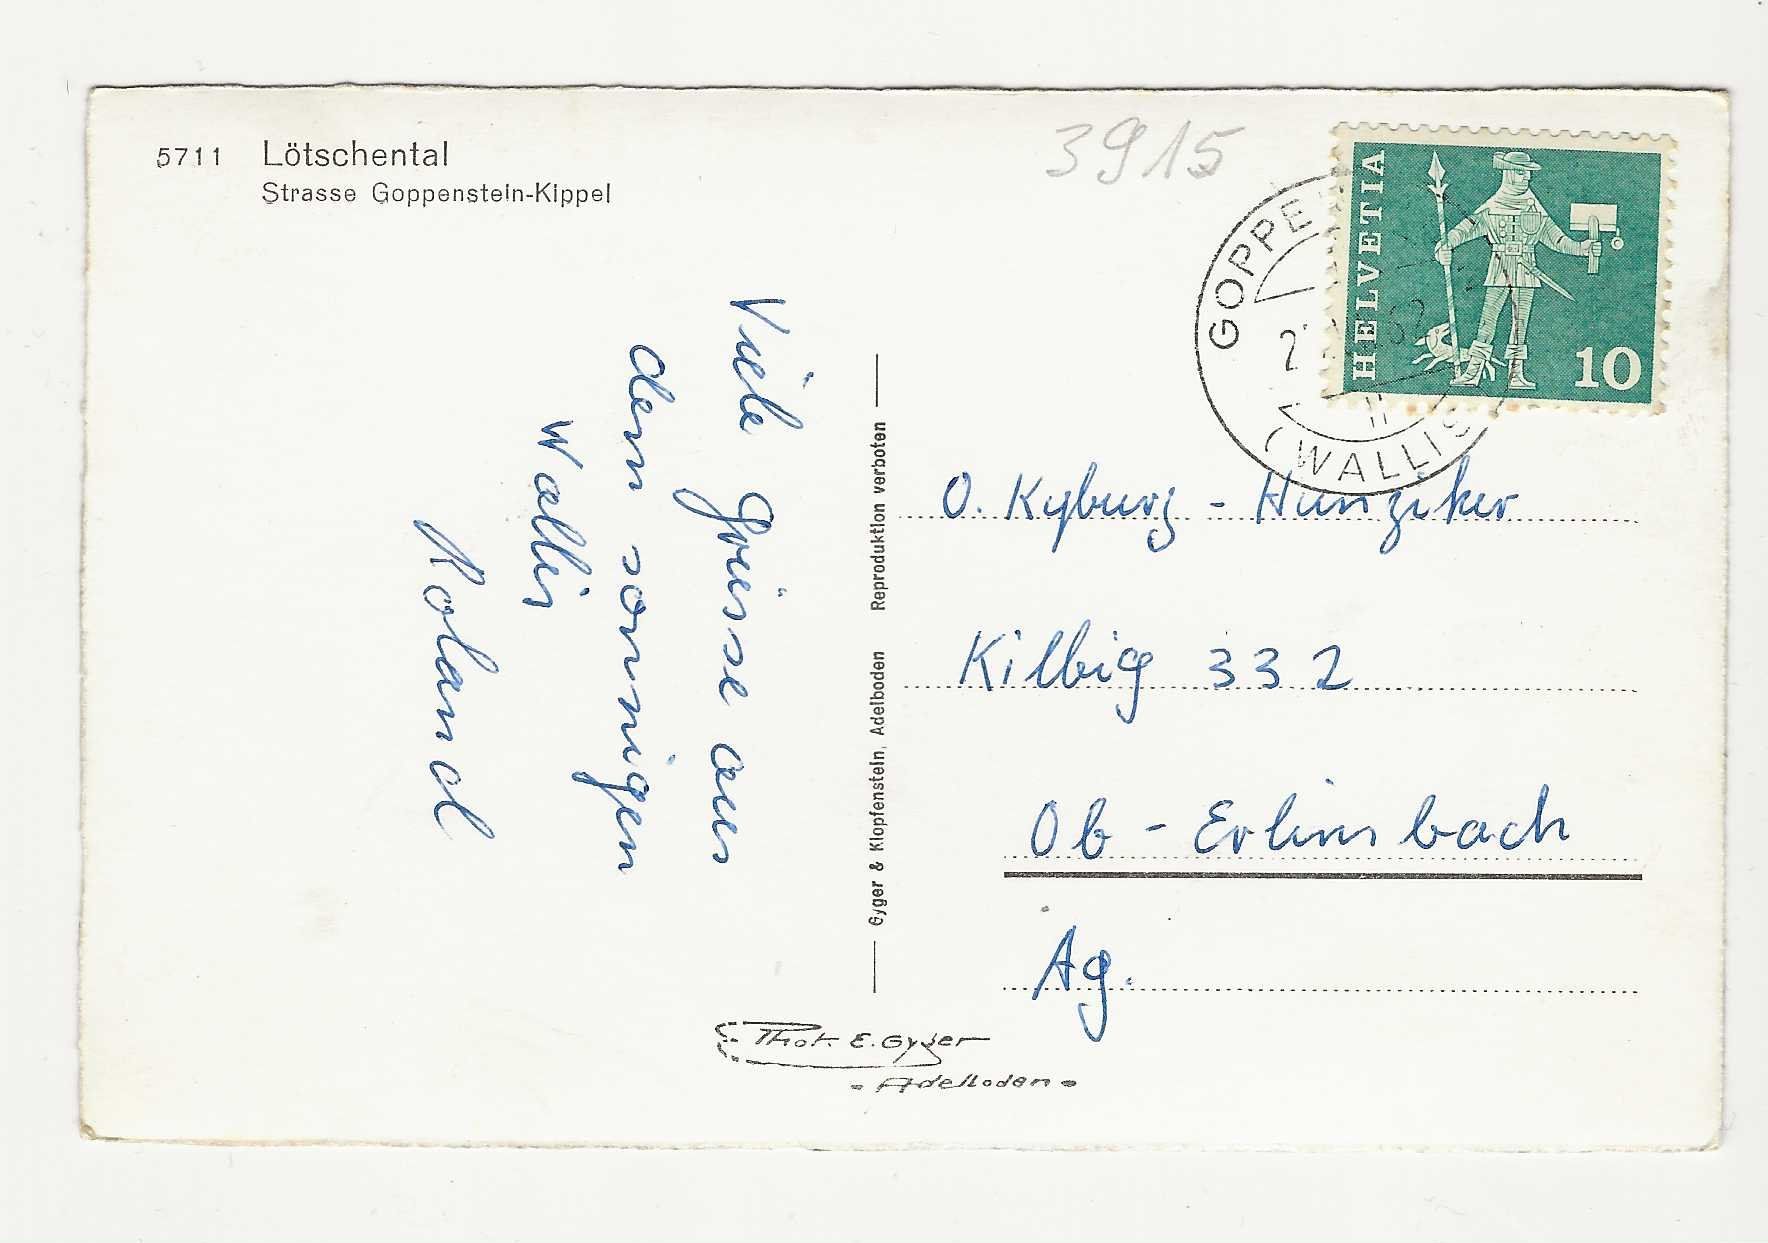 5711 Lötschental
Strasse Goppenstein-Kippel
3915
HELVETIA
10
GOPPE
(WALLIS
Viele Grüsse aus
dem sonnigen
Wallis
Roland
Gyger & Klopfenstein, Adelboden Reproduktion verboten
O. Kyburz - Hunziker
Kilbig 332
Ob - Erlinsbach
Ag.
Phot. E. Gyger
- Adelboden -